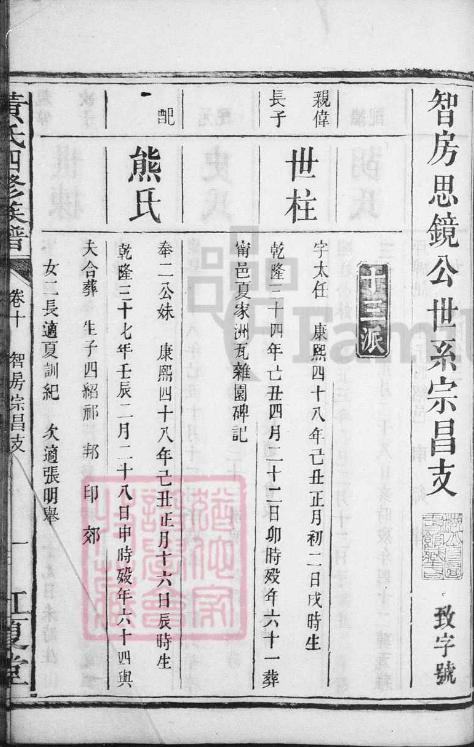 智房思鏡公世系宗昌支
致字號
十三派
親偉長子
世柱
字太任 康熙四十八年己丑正月初二日戌時生
乾隆三十四年己丑四月二十二日卯時歿年六十一葬
甯邑夏家洲瓦雜園碑記
配
熊氏
奉二公妹 康熙四十八年己丑正月十六日辰時生
乾隆三十七年壬辰二月二十八日申時歿年六十四與
夫合葬 生子四紹祁 邦 印 郊
女二長適夏訓紀 次適張明舉
黃氏四修族譜
卷十 智房宗昌支
一
江夏堂